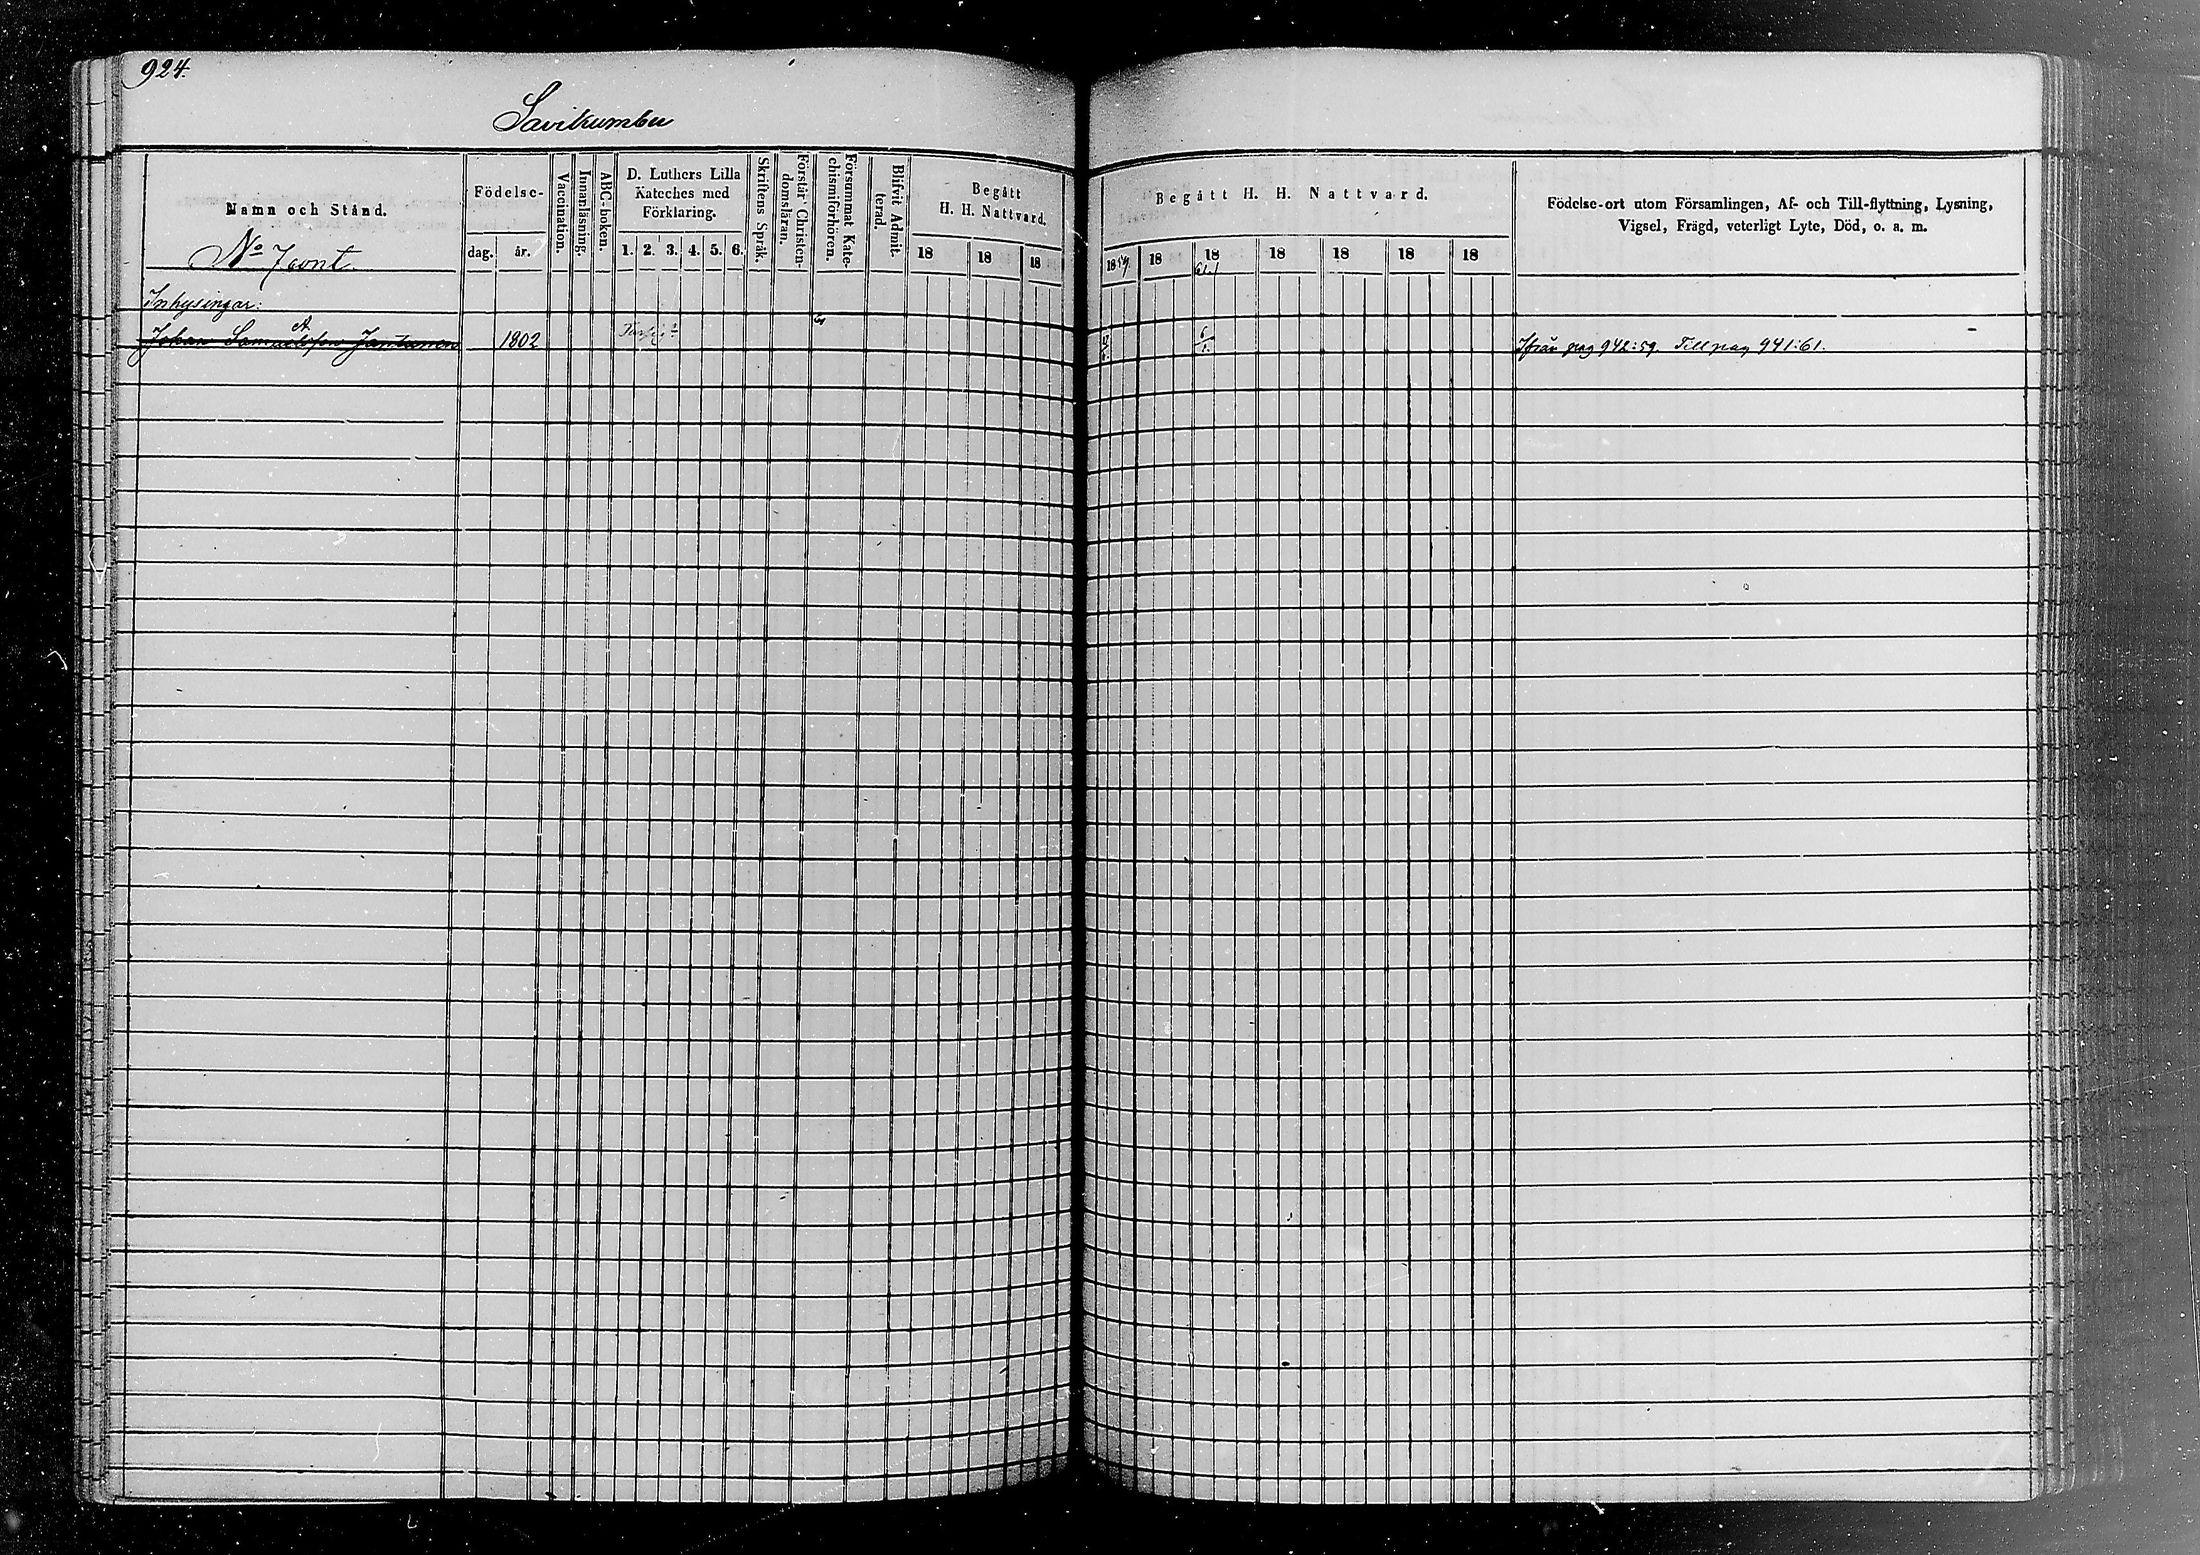 924.
Savikumbu
Namn och Stånd.
Födelse-
dag. år.
Vaccination.
Innanläsning.
ABC-boken.
D. Luthers Lilla
Kateches med
Förklaring.
1. 2. 3. 4. 5. 6.
Skriftens Språk.
Förstår Christen-
domsläran.
Försummat Kate-
chismiförhören.
Blifvit Admit-
terad.
Begått
H. H. Nattvard.
18 18 18
Begått H. H. Nattvard.
1859. 18 18 61. 18 18 18 18
Födelse-ort utom Församlingen, Af- och Till-flyttning, Lysning,
Vigsel, Frägd, veterligt Lyte, Död, o. a. m.
No Jaont.
Inhysingar:
Johan Samuelsson Jantunen 1802 6/1. Ifrån pag 942:59. Till pag 941:61.